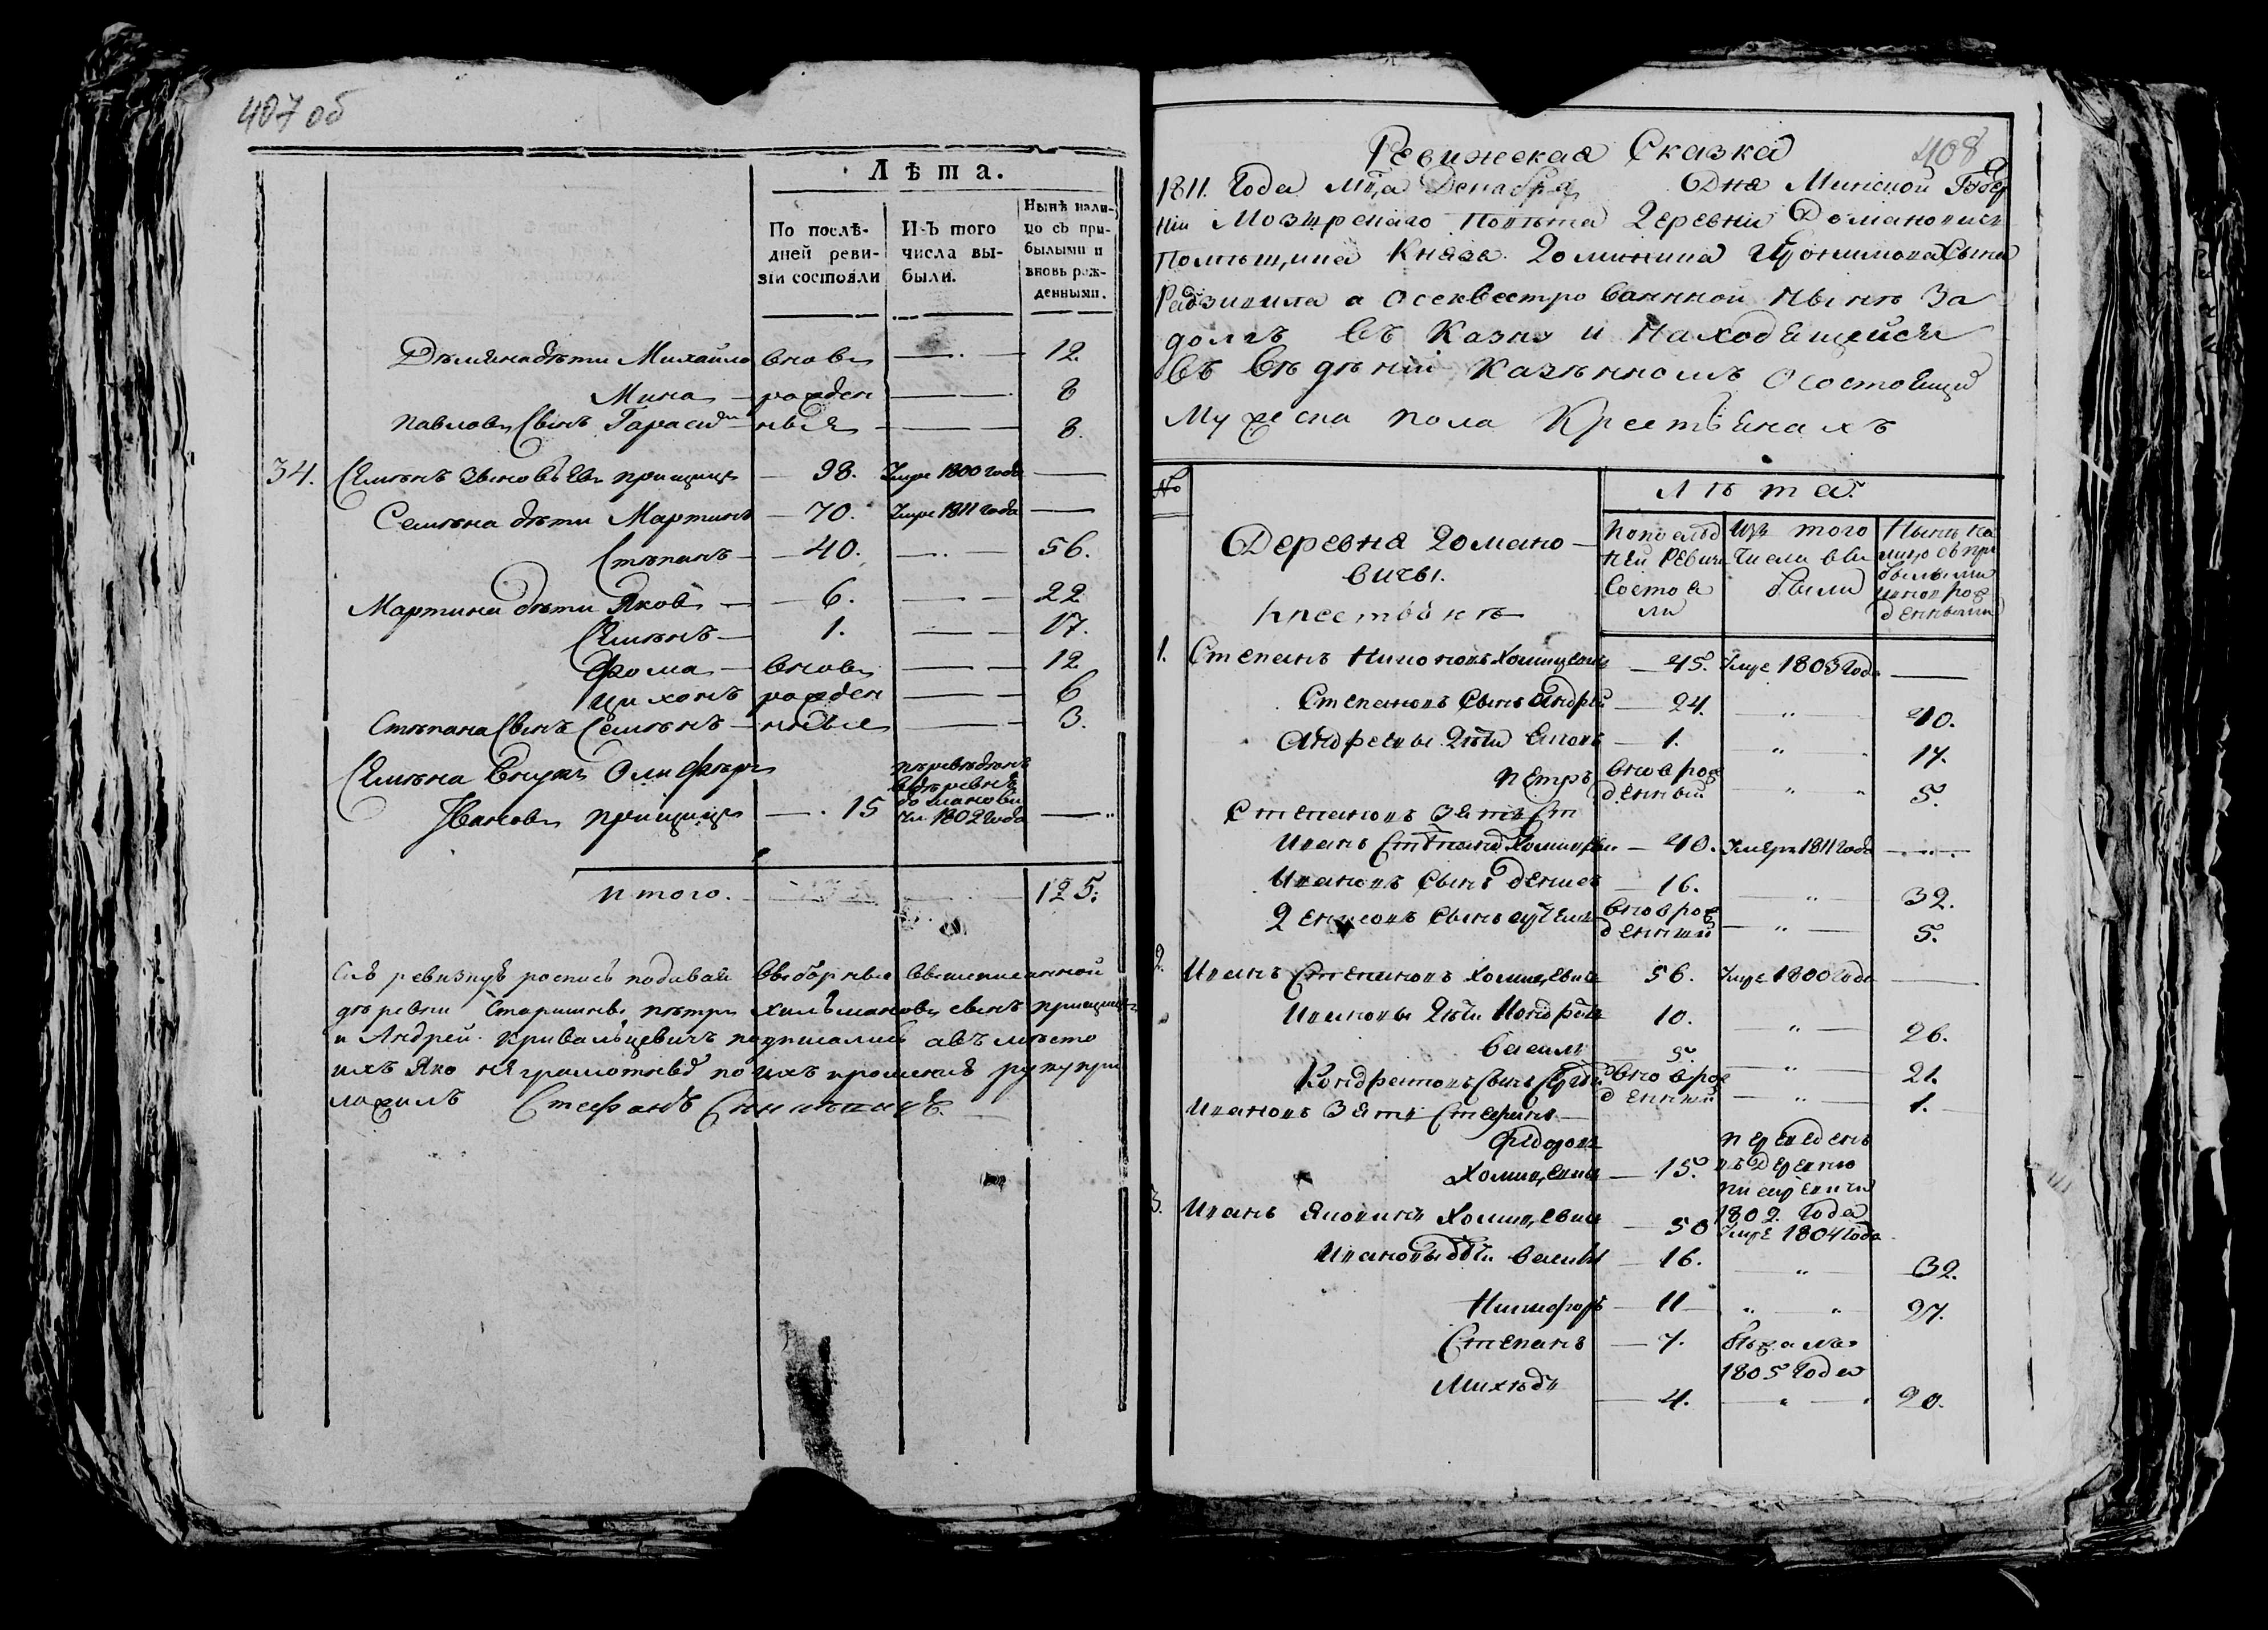 407 об
Лѣта.
По послѣдней ревизіи состояли
Изъ того числа выбыли.
Нынѣ налицо съ прибылыми и вновь рожденными.
Дѣмяна дѣти Михайло вновь — 12.
Мина рожден — 8
Павловъ Сынъ Гараси ные — 8.
34. Сямѣнъ Прищицъ — 98. Умре 1800 года —
Семѣна дѣти Мартинъ — 70. Умре 1811 года —
Стѣпанъ — 40. — 56.
Мартина дѣти Яковъ — 6. — 22
Сямѣнъ — 1. — 17.
Фома — вновь — 12
Цихонъ рожден — 6
Стѣпана Сынъ Семѣнъ — ные — 3.
Сямѣна Внукъ Олифѣръ
Ивановъ Прищицъ — 15 пѣревѣдѣнъ вдѣревню Домановичи 1802 года —
итого. — 125:
Сию ревизкую роспись подавали выборные вышеписанной
дѣревни Старишные Пѣтръ сынъ Прищицъ
и Андрей Кривальцевичъ подписались авъмѣсто
ихъ яко неграмотныхъ по ихъ прошению руку при
ложилъ Стефанъ
408
Ревижская Сказка
1811. Года мца Декабря Дня Минской Губер
нии Мозырскаго Повѣта Деревни Домановичь
Помѣщика Князя Доминика Иронимова Сына
Радзивила а осеквестрованной нынѣ За
долгъ въ Казну и Находящейся
въ вѣденіи Казенномъ о состоящихъ
Мужеска пола Крестьянахъ
№
Деревня Доманo-
вичы.
Крестьянъ
Лѣта.
По послѣдней Ревизи Состояли
Изъ того Числа выбыли
Нынѣ налицо съ прибылыми и вновь рожденными
1. Степанъ Никоновъ Хомицевичъ — 45. Умре 1803 Года —
Степановъ Сынъ Андрей — 24. — 40.
Андреевы Дѣти Яковъ — 1. — 17.
Петръ вновь рожденный — 5.
Степановъ Зять
Иванъ Хомицевичъ — 40. Умеръ 1811 года —
Ивановъ Сынъ Денисъ — 16. — 32.
Денисовъ Сынъ вновь рожденный — 5.
2. Иванъ Степановъ Хомицевичъ 56. Умре 1800 Года —
Ивановы Дѣти Кондратъ 10. — 26.
Василь 5. — 21.
Кондратовъ Сынъ вновь рожденный — 1.
Ивановъ Зять Стефанъ
Федоровъ
Хомицевичъ — 15. переведенъ въ Деревню 1802 Года
3. Иванъ Яковинъ Хомицевичъ — 50 Умре 1804 Года
Ивановы дѣти Василей — 16. — 32.
Никифоръ — 11 — 27.
Степанъ — 7. бѣжалъ
1805 Года
Михѣдъ — 4. — 20.